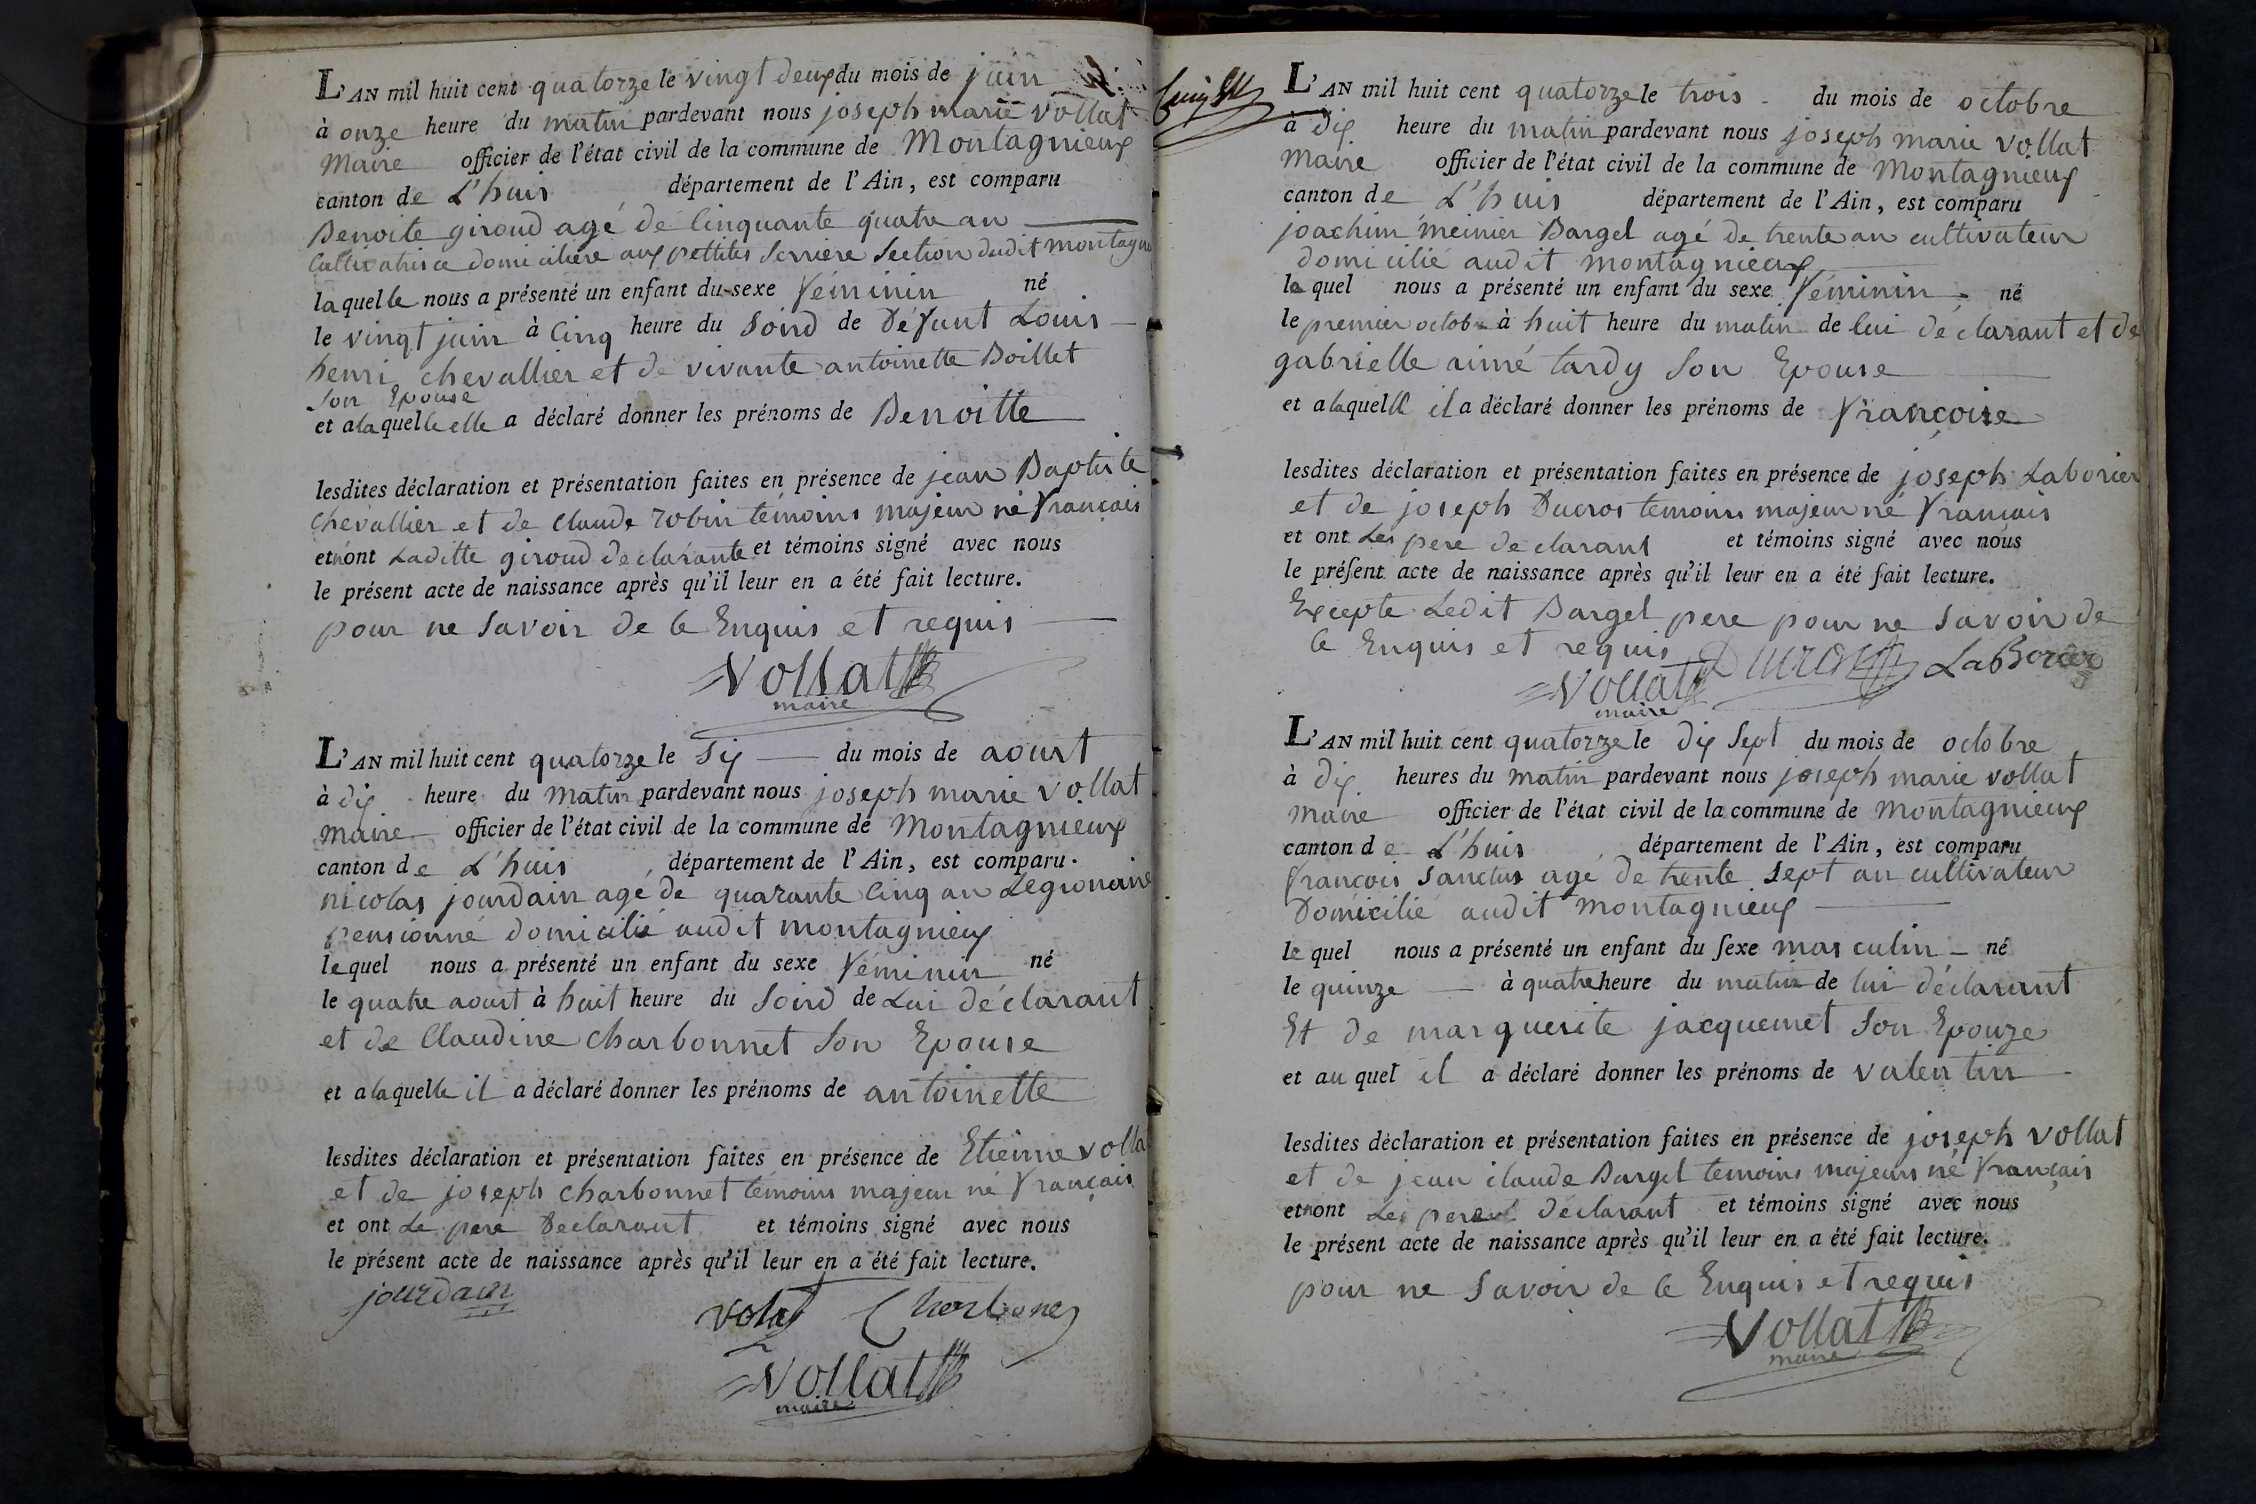 L'AN mil huit cent quatorze le vingt deux du mois de juin
à onze heure du matin pardevant nous joseph marie vollat
Maire officier de l'état civil de la commune de Montagnieux
canton de L'huis département de l'Ain, est comparu
Benoite giroud agé de Cinquante quatre an
Cultivatrice domiciliére aux pettites Serriere Section dudit montagn
laquelle nous a présenté un enfant du sexe féminin né
le vingt juin à Cinq heure du Soird de défunt Louis
henri chevallier et de vivante antoinette Boillet
Son Epouse
et alaquelle elle a déclaré donner les prénoms de Benoitte
lesdites déclaration et présentation faites en présence de jean Baptiste
chevallier et de claude robin témoins majeur né français
et nont Laditte giroud declarante et témoins signé avec nous
le présent acte de naissance après qu'il leur en a été fait lecture.
pour ne Savoir de Ce Enquis et requis
Vollat
maire
L'AN mil huit cent quatorze le Six du mois de aoust
à dix heure du matin pardevant nous joseph marie vollat
maire officier de l'état civil de la commune de Montagnieux
canton de L'huis département de l'Ain, est comparu
nicolas jourdain agé de quarante Cinq an Legionaire
pensionné domicilié audit montagnieux
lequel nous a présenté un enfant du sexe féminin né
le quatre aoust à huit heure du Soird de Lui déclarant
et de Claudine charbonnet Son Epouse
et alaquelle il a déclaré donner les prénoms de antoinette
lesdites déclaration et présentation faites en présence de Etienne volla
et de joseph charbonnet témoins majeur né français
et ont Le pere Declarant et témoins signé avec nous
le présent acte de naissance après qu'il leur en a été fait lecture.
jourdain
volat Charbone
Vollat
maire
L'AN mil huit cent quatorze le trois du mois de octobre
à dix heure du matin pardevant nous joseph marie vollat
maire officier de l'état civil de la commune de Montagnieux
canton de L'huis département de l'Ain, est comparu
joachim meinier Bargel agé de trente an cultivateur
domicilié audit montagnieux
lequel nous a présenté un enfant du sexe féminin né
le premier octobre à huit heure du matin de lui déclarant et de
gabrielle aimé tardy Son Epouse
et alaquelle il a déclaré donner les prénoms de françoise
lesdites déclaration et présentation faites en présence de joseph Laborier
et de joseph Ducros temoins majeur né français
et ont Les pere declarant et témoins signé avec nous
le présent acte de naissance après qu'il leur en a été fait lecture.
Excepte Ledit Bargel pere pour ne Savoir de
Ce Enquis et requis Ducros LaBorier
Vollat
maire
L'AN mil huit cent quatorze le dix Sept du mois de octobre
à dix heures du matin pardevant nous joseph marie vollat
maire officier de l'état civil de la commune de montagnieux
canton de L'huis département de l'Ain, est comparu
françois Sanctus agé de trente Sept an cultivateur
Domicilié audit montagnieux
lequel nous a présenté un enfant du sexe masculin né
le quinze à quatre heure du matin de lui déclarant
Et de marguerite jacquemet Son Epouze
et auquel il a déclaré donner les prénoms de valentin
lesdites déclaration et présentation faites en présence de joseph vollat
et de jean claude Bargel temoins majeurs né français
et nont Les pere déclarant et témoins signé avec nous
le présent acte de naissance après qu'il leur en a été fait lecture.
pour ne Savoir de Ce Enquis et requis
Vollat
maire